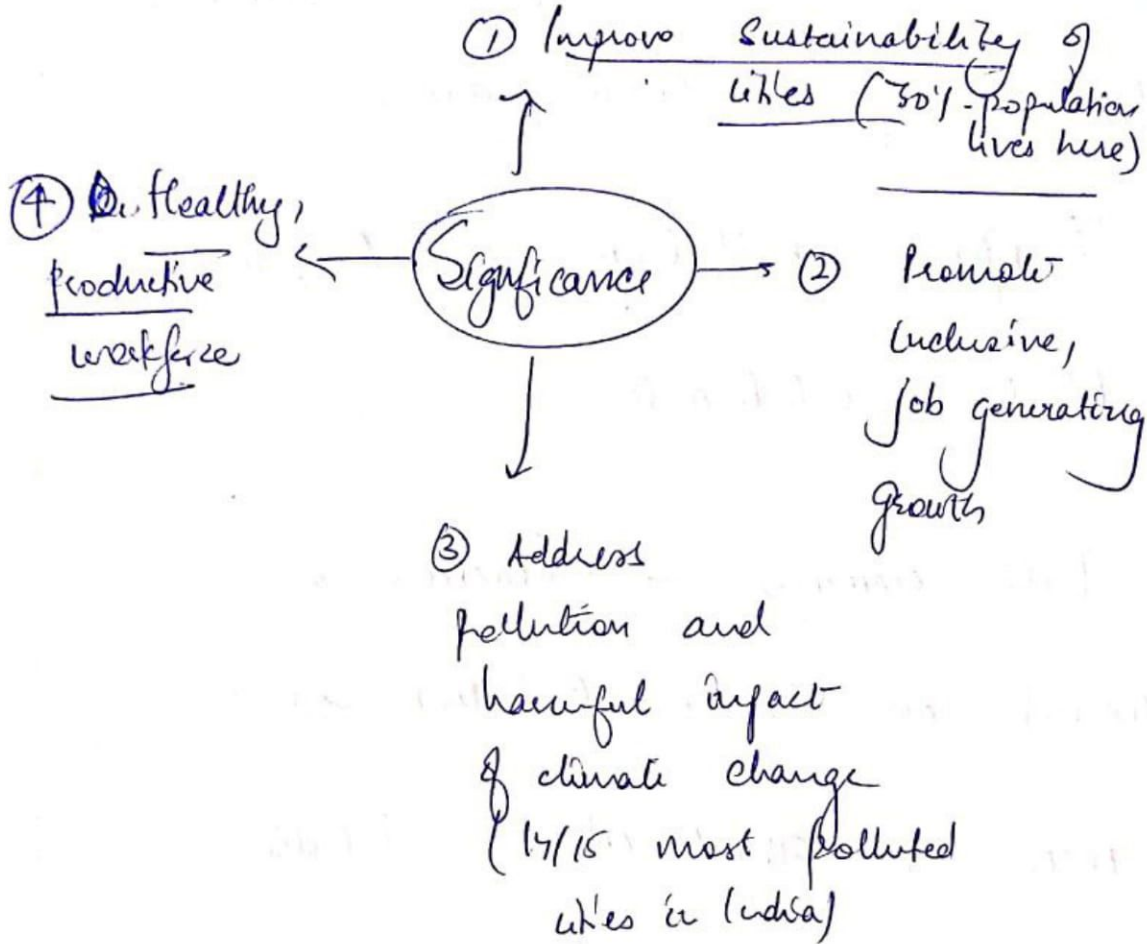 ① Improve Sustainability of
cities (30% population
lives here)
④ Healthy,
productive
workforce
Significance
② Promote
inclusive,
job generating
growth
③ Address
pollution and
harmful impact
of climate change
(14/15 most polluted
cities in India)